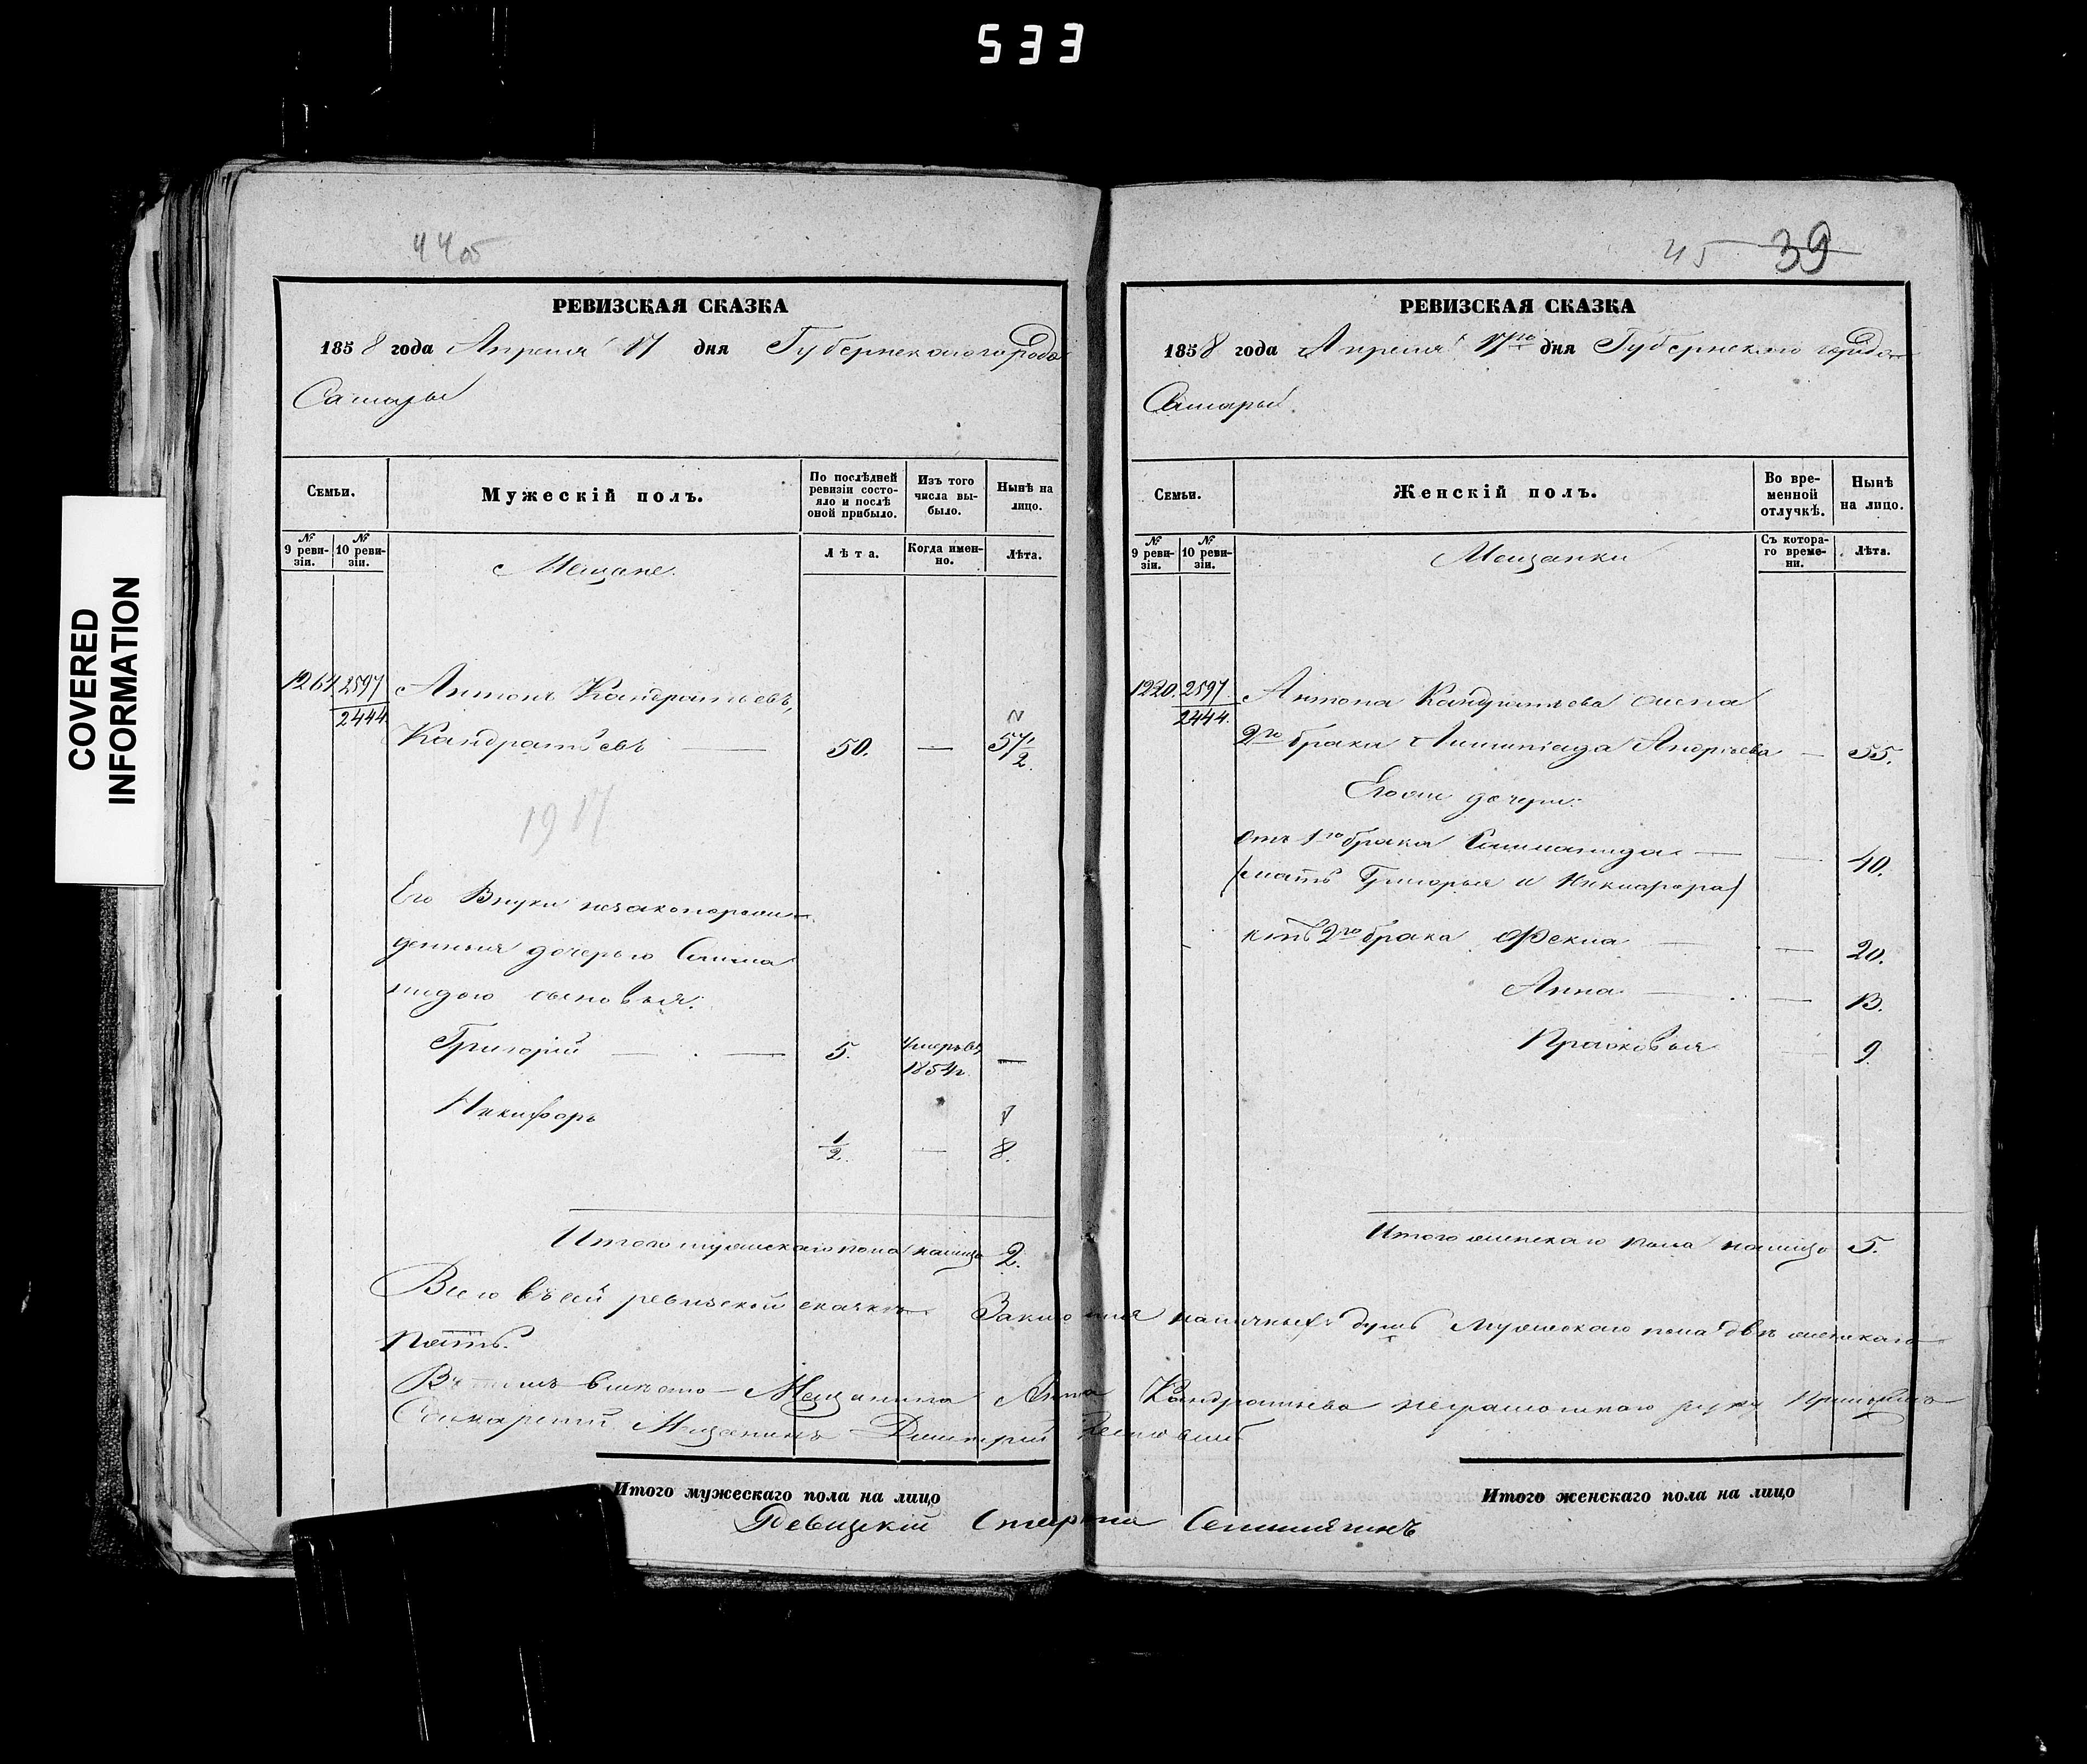 533
COVERED
INFORMATION
44об
РЕВИЗСКАЯ СКАЗКА
1858 года Апреля 17 дня Губернскаго города
Самары
Семьи.
Мужескій полъ.
По послѣдней ревизіи состояло и послѣ оной прибыло.
Изъ того числа выбыло.
Нынѣ на лицо.
№ 9 ревизіи.
№ 10 ревизіи.
Лѣта.
Когда именно.
Лѣта.
Мещане.
1264 2597 Антонъ Кандратьевъ,
2444 Кандратьевъ — 50. — 57 1/2.
1917
Его Внуки незаконорож-
денныя дочерью Сома
нидою сыновья:
Григорій — 5. Умеръ въ 1854 г. —
Никифоръ
1/2. — 8.
Итого мужескаго пола налицо 2.
45 39
РЕВИЗСКАЯ СКАЗКА
1858 года Апреля 17го дня Губернскаго города
Самары.
Семьи.
Женскій полъ.
Во временной отлучкѣ.
Нынѣ на лицо.
№ 9 ревизіи.
№ 10 ревизіи.
Съ котораго времени.
Лѣта.
Мещанки
1220. 2597 Антона Кандратьева жена
2444. 2го брака Андріева — 55.
Егоже дочери:
Отъ 1го брака — — 40.
(мать Григорья и Никифора)
отъ 2го брака Фекла — — 20.
Анна — — 13.
Прасковья 9.
Итого женскаго пола налицо 5.
Всего въ сей ревизской сказкѣ Заключая наличныхъ душъ Мужескаго пола двѣ женскаго
пять.
вместо Мещанина Антона Кандратьева неграмотнаго руку приложилъ
Самарской Мещанинъ Дмитрій
Итого мужескаго пола на лицо
Итого женскаго пола на лицо
Ревизскій Староста